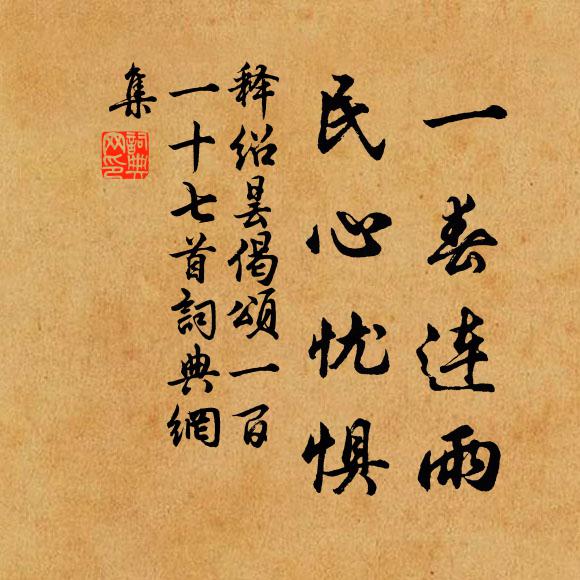 一春连雨
民心忧惧
释绍昙偈颂一百
一十七首詞典網
集
詞典網印